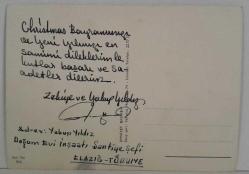 Christmas Bayramınızı
ve Yeni Yılınızı en
samimi dileklerimle
kutlar başarı ve sa-
adetler dileriz.
Zekiye ve Yakup Yıldız
Adres: Yakup Yıldız
Doğum Evi İnşaatı Şantiye Şefi
ELAZIĞ-TÜRKİYE